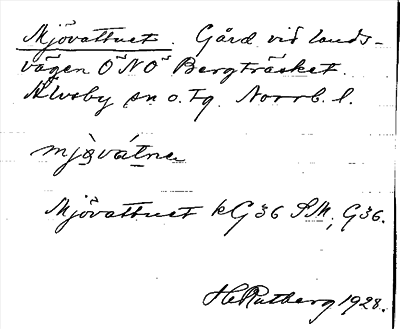 Mjövattnet. Gård vid lands-
vägen ONO Bergträsket.
Älvsby sn o. tg. Norrb. l.
mjǫ̀vátnɐ
Mjövattnet kG36 SM, G36.
H Rutberg 1928.